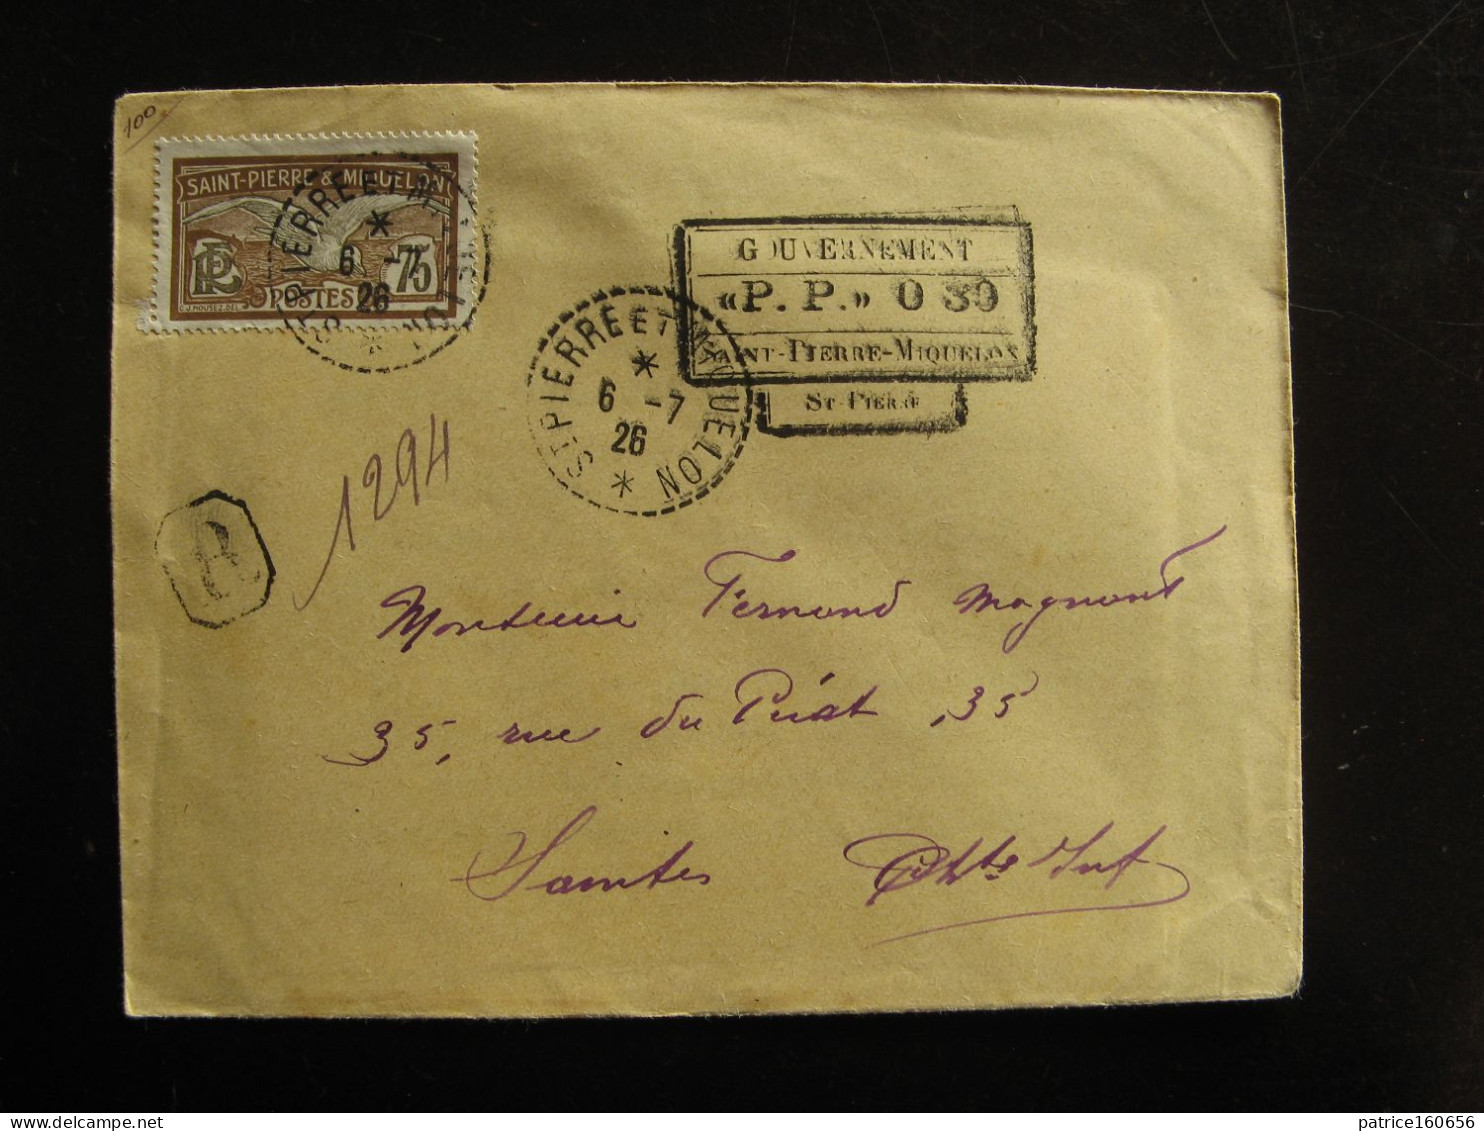 100
SAINT-PIERRE & MIQUELON
75
POSTES
ST PIERRE ET M QUELON
6 -7
26
GOUVERNEMENT
«P. P.» 0 30
SAINT-PIERRE-MIQUELON
ST-PIERRE
ST PIERRE ET MIQUELON
6 -7
26
R
1294
Monsieur Fernand Magnant
35, rue du Périat, 35
Saintes Chte Inf
delcampe.net
patrice160656